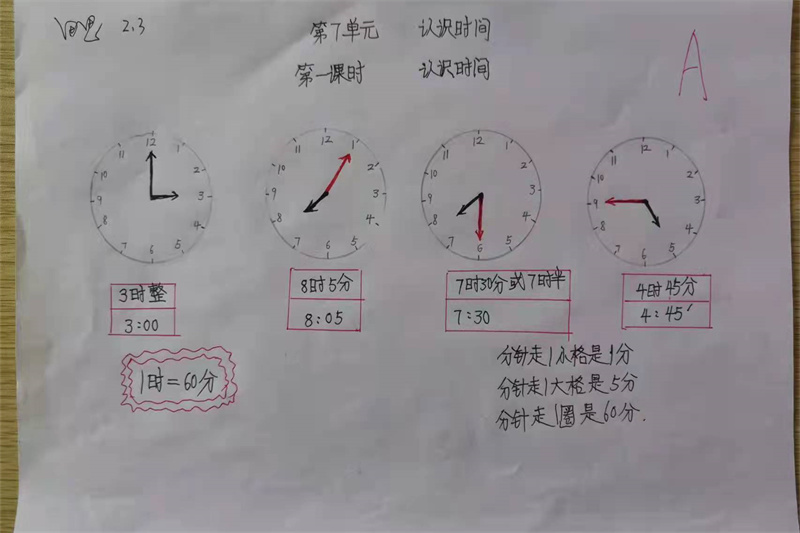 2.3
第7单元 认识时间
第一课时 认识时间
A
12 1 2 3 4 5 6 7 8 9 10 11
12 1 2 3 4 5 6 7 8 9 10 11
12 1 2 3 4 5 6 7 8 9 10 11
12 1 2 3 4 5 6 7 8 9 10 11
3时整
3:00
8时5分
8:05
7时30分或7时半
7:30
4时45分
4:45
1时=60分
分针走1小格是1分
分针走1大格是5分
分针走1圈是60分.